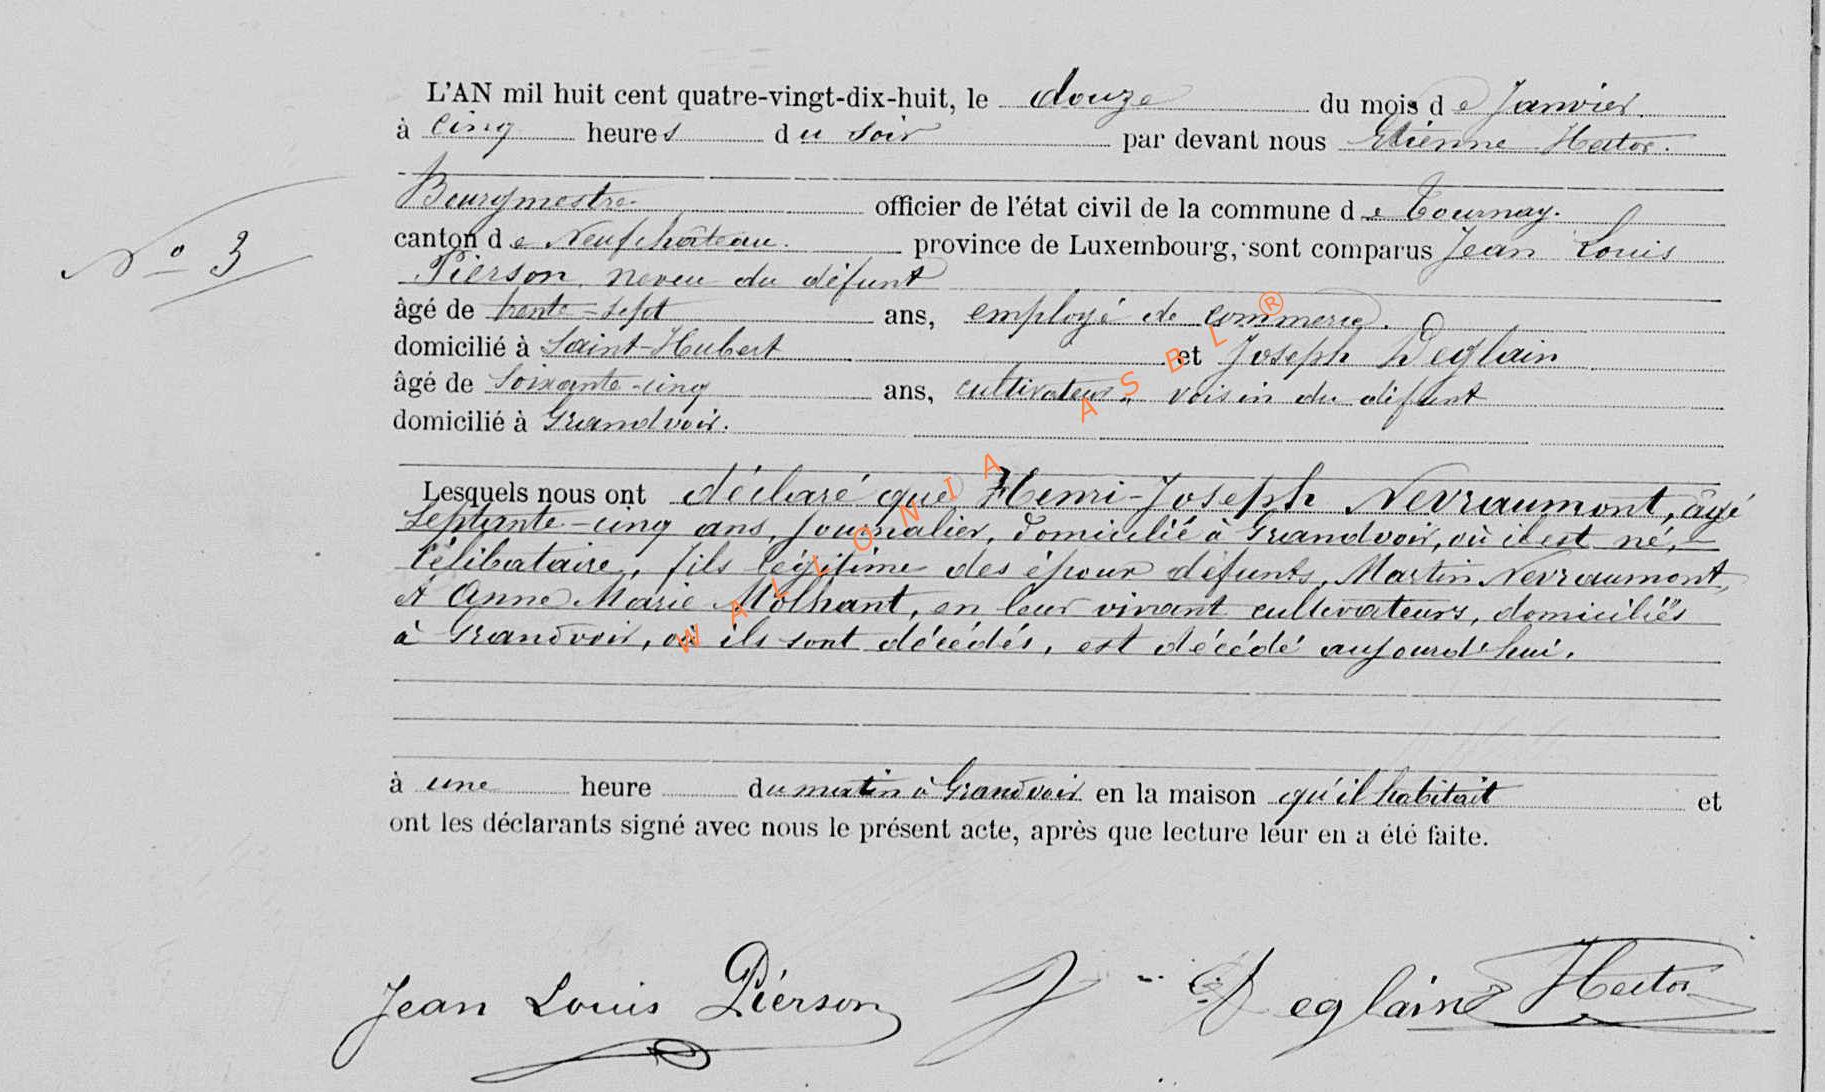 L'AN mil huit cent quatre-vingt-dix-huit, le douze du mois de Janvier.
à cinq heures du soir par devant nous Etienne Hector.
Bourgmestre officier de l'état civil de la commune de Tournay.
N° 3
canton de Neufchâteau. province de Luxembourg, sont comparus Jean Louis
Pierson, neveu du défunt
âgé de trente-sept ans, employé de commerce.
domicilié à Saint-Hubert et Joseph Deglain
âgé de soixante-cinq ans, cultivateur, voisin du défunt
domicilié à Grandvoir.
Lesquels nous ont déclaré que Henri-Joseph Nevraumont, âgé
septante-cinq ans, journalier, domicilié à Grandvoir, où il est né,
célibataire, fils légitime des époux défunts, Martin Nevraumont,
et Anne Marie Molhant, en leur vivant cultivateurs, domiciliés
à Grandvoir, où ils sont décédés, est décédé aujourd'hui.
à une heure du matin à Grandvoir en la maison qu'il habitait et
ont les déclarants signé avec nous le présent acte, après que lecture leur en a été faite.
Jean Louis Piérson J Deglain Hector
WALLONIA ASBL ®